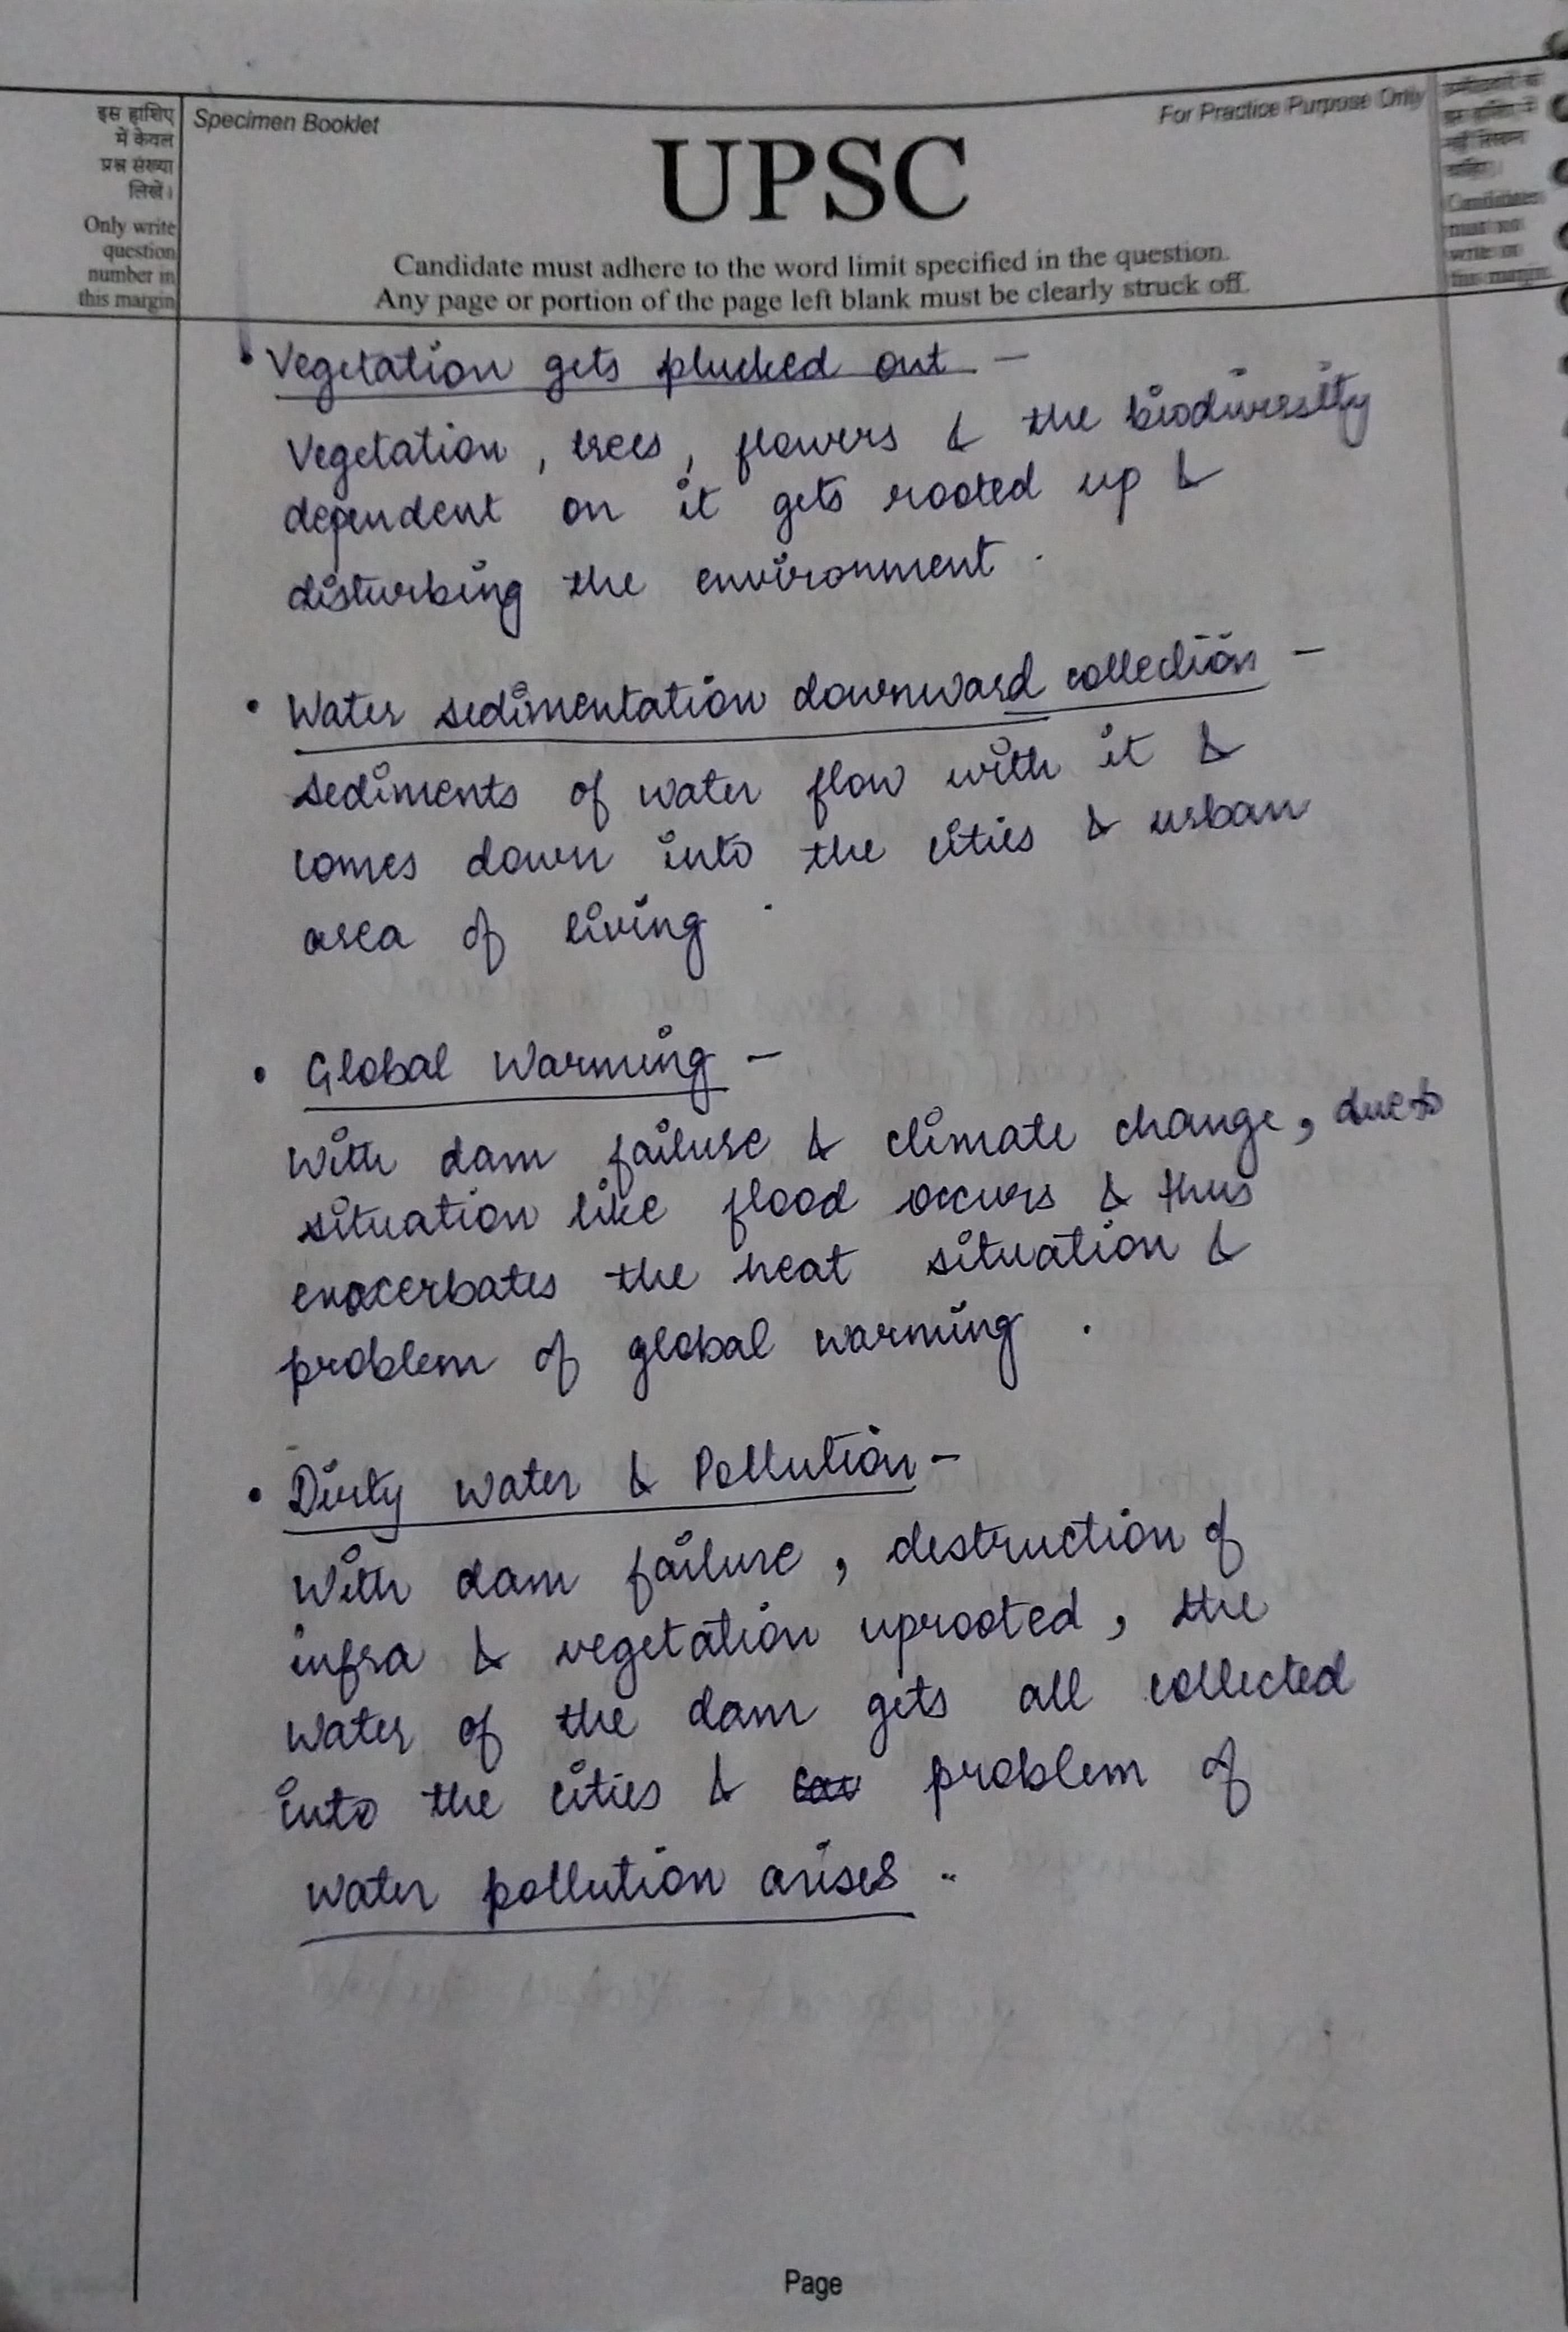 इस हाशिए
में केवल
प्रश्न संख्या
लिखें।
Only write
question
number in
this margin
Specimen Booklet
For Practice Purpose Only
UPSC
Candidate must adhere to the word limit specified in the question.
Any page or portion of the page left blank must be clearly struck off.
Candidates
must not
write on
this margin
• Vegetation gets plucked out –
Vegetation, trees, flowers & the biodiversity
dependent on it gets rooted up &
disturbing the environment.
• Water sedimentation downward collection –
sediments of water flow with it &
comes down into the cities & urban
area of living.
• Global Warming –
With dam failure & climate change, due to
situation like flood occurs & thus
exacerbates the heat situation &
problem of global warming.
• Dirty water & Pollution –
With dam failure, destruction of
infra & vegetation uprooted, the
water of the dam gets all collected
into the cities & problem of
water pollution arises..
Page